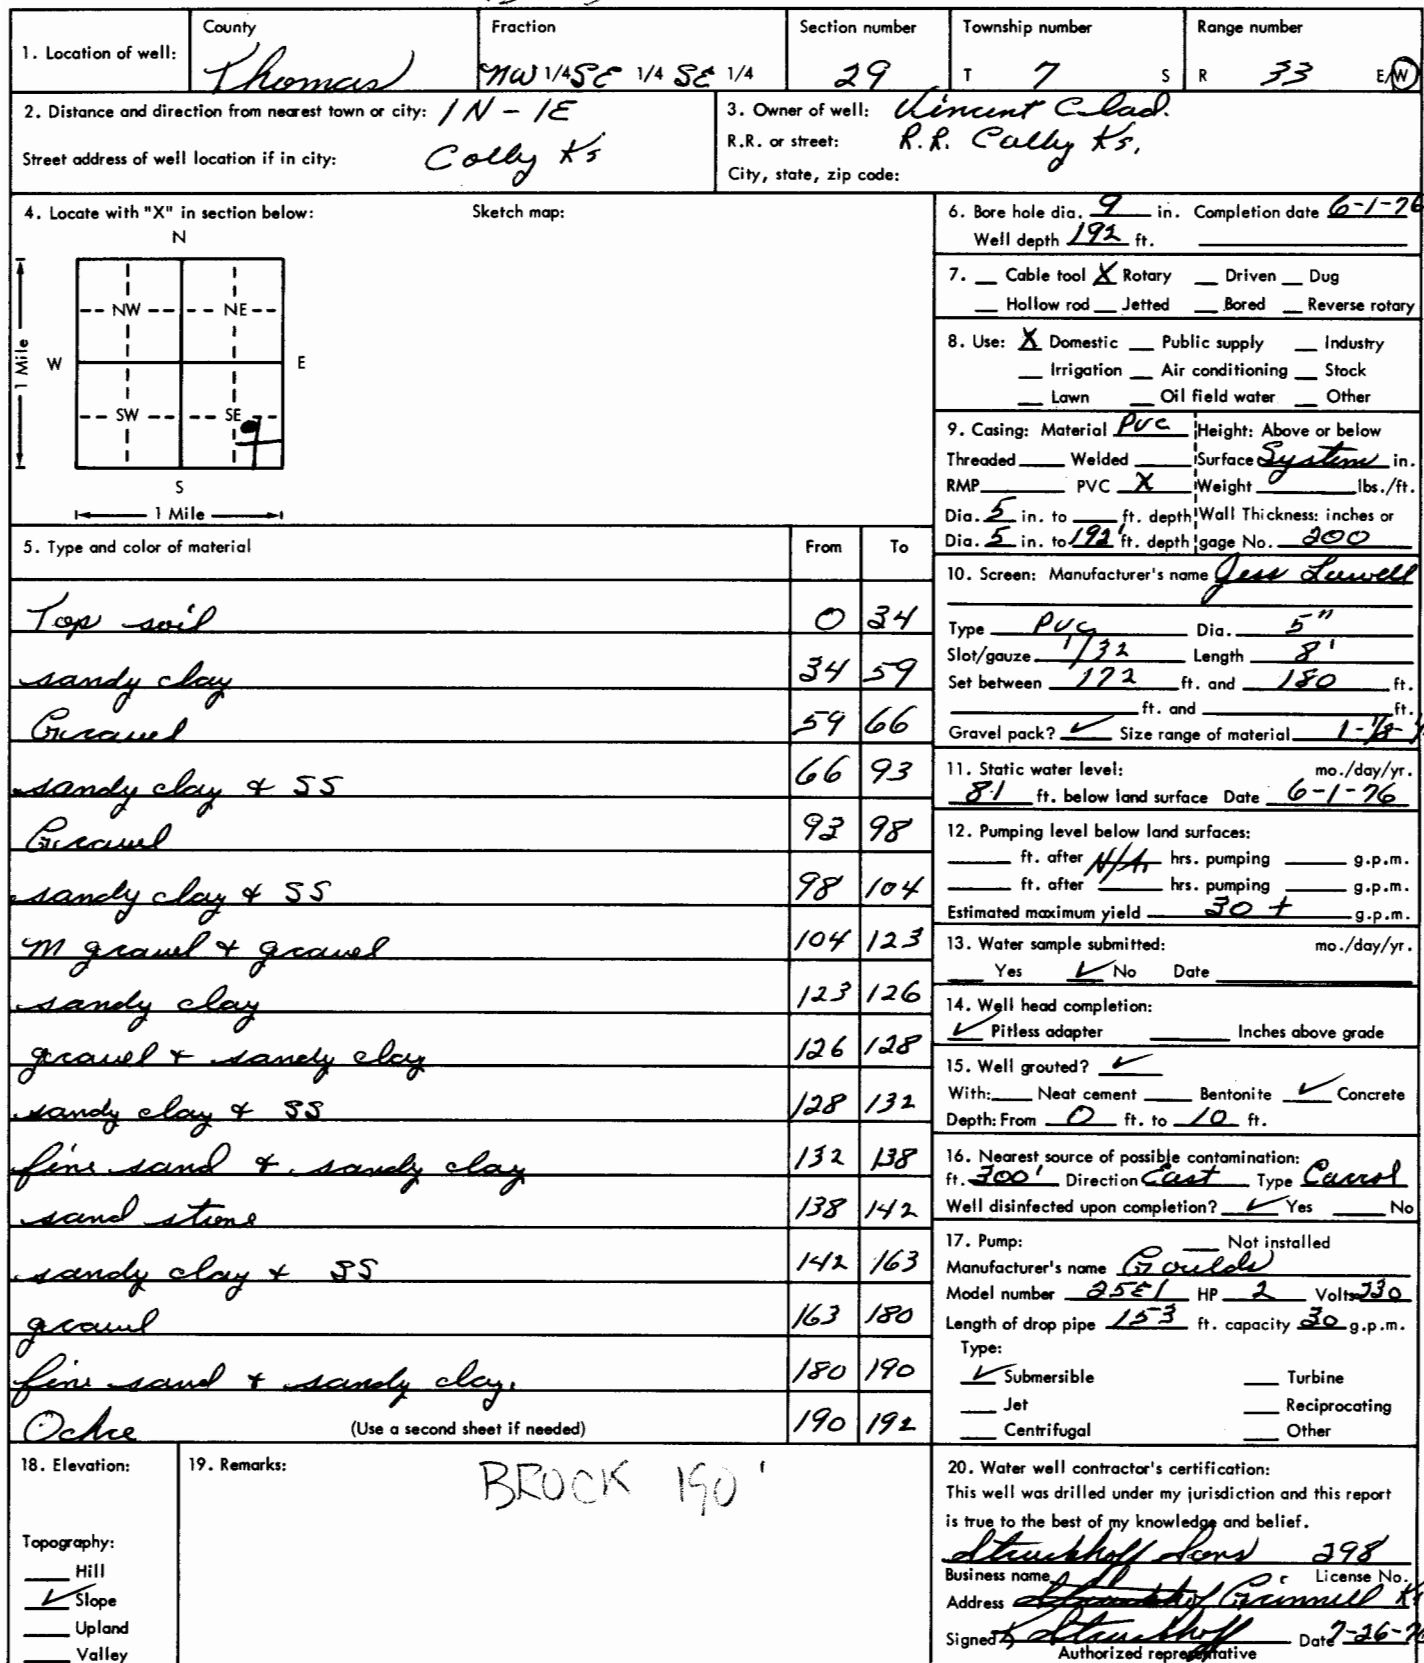 County Fraction Section number Township number Range number
1. Location of well: Thomas NW 1/4 SE 1/4 SE 1/4 29 T 7 S R 33 E/W
2. Distance and direction from nearest town or city: 1N - 1E
Street address of well location if in city: Colby Ks
3. Owner of well: Vincent Clad.
R.R. or street: R.R. Colby Ks,
City, state, zip code:
4. Locate with "X" in section below: Sketch map:
N
NW NE
W E
SW SE
S
1 Mile
1 Mile
5. Type and color of material From To
Top soil 0 34
sandy clay 34 59
Gravel 59 66
sandy clay & SS 66 93
Gravel 93 98
sandy clay & SS 98 104
M gravel & gravel 104 123
sandy clay 123 126
gravel & sandy clay 126 128
sandy clay & SS 128 132
fine sand & sandy clay 132 138
sand stone 138 142
sandy clay & SS 142 163
gravel 163 180
fine sand & sandy clay. 180 190
Ochre (Use a second sheet if needed) 190 192
6. Bore hole dia. 9 in. Completion date 6-1-76
Well depth 192 ft.
7. Cable tool X Rotary Driven Dug
Hollow rod Jetted Bored Reverse rotary
8. Use: X Domestic Public supply Industry
Irrigation Air conditioning Stock
Lawn Oil field water Other
9. Casing: Material PVC Height: Above or below
Threaded Welded Surface System in.
RMP PVC X Weight lbs./ft.
Dia. 5 in. to ft. depth Wall Thickness: inches or
Dia. 5 in. to 192' ft. depth gage No. 200
10. Screen: Manufacturer's name Jess
Type PVC Dia. 5"
Slot/gauze 1/32 Length 8'
Set between 172 ft. and 180 ft.
ft. and ft.
Gravel pack? ✓ Size range of material 1-1/8-
11. Static water level: mo./day/yr.
81 ft. below land surface Date 6-1-76
12. Pumping level below land surfaces:
ft. after N/A. hrs. pumping g.p.m.
ft. after hrs. pumping g.p.m.
Estimated maximum yield 30 + g.p.m.
13. Water sample submitted: mo./day/yr.
Yes ✓ No Date
14. Well head completion:
✓ Pitless adapter Inches above grade
15. Well grouted? ✓
With: Neat cement Bentonite ✓ Concrete
Depth: From 0 ft. to 10 ft.
16. Nearest source of possible contamination:
ft. 300' Direction East Type Carrol
Well disinfected upon completion? ✓ Yes No
17. Pump: Not installed
Manufacturer's name Goulds
Model number 25E1 HP 2 Volts 230
Length of drop pipe 153 ft. capacity 30 g.p.m.
Type:
✓ Submersible Turbine
Jet Reciprocating
Centrifugal Other
18. Elevation:
Topography:
Hill
✓ Slope
Upland
Valley
19. Remarks:
BROCK 190'
20. Water well contractor's certification:
This well was drilled under my jurisdiction and this report
is true to the best of my knowledge and belief.
Struckhoff Sons 298
Business name License No.
Address Grinnell Ks
Signed Struckhoff Date 7-26-76
Authorized representative